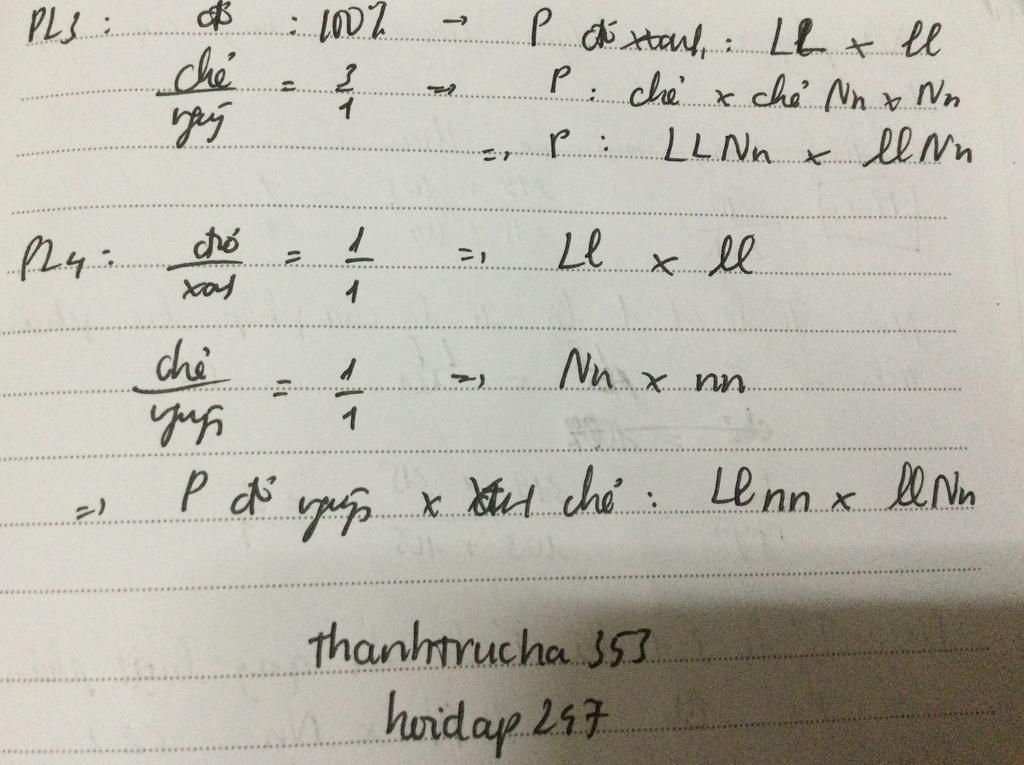 PL3 : đỏ : 100% → P đỏ x xanh : LL x ll
chẻ / nguyên = 3 / 1 → P : chẻ x chẻ Nn x Nn
=> P : LLNn x llNn
PL4 : đỏ / xanh = 1 / 1 => Ll x ll
chẻ / nguyên = 1 / 1 => Nn x nn
=> P đỏ nguyên x xanh chẻ : Llnn x llNn
thanhtrucha 353
hoidap 247